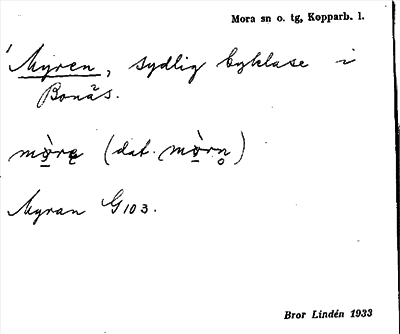 Mora sn o. tg, Kopparb. l.
Myren, sydlig byklase i
Bonäs.
(dat.
Myran G103.
Bror Lindén 1933